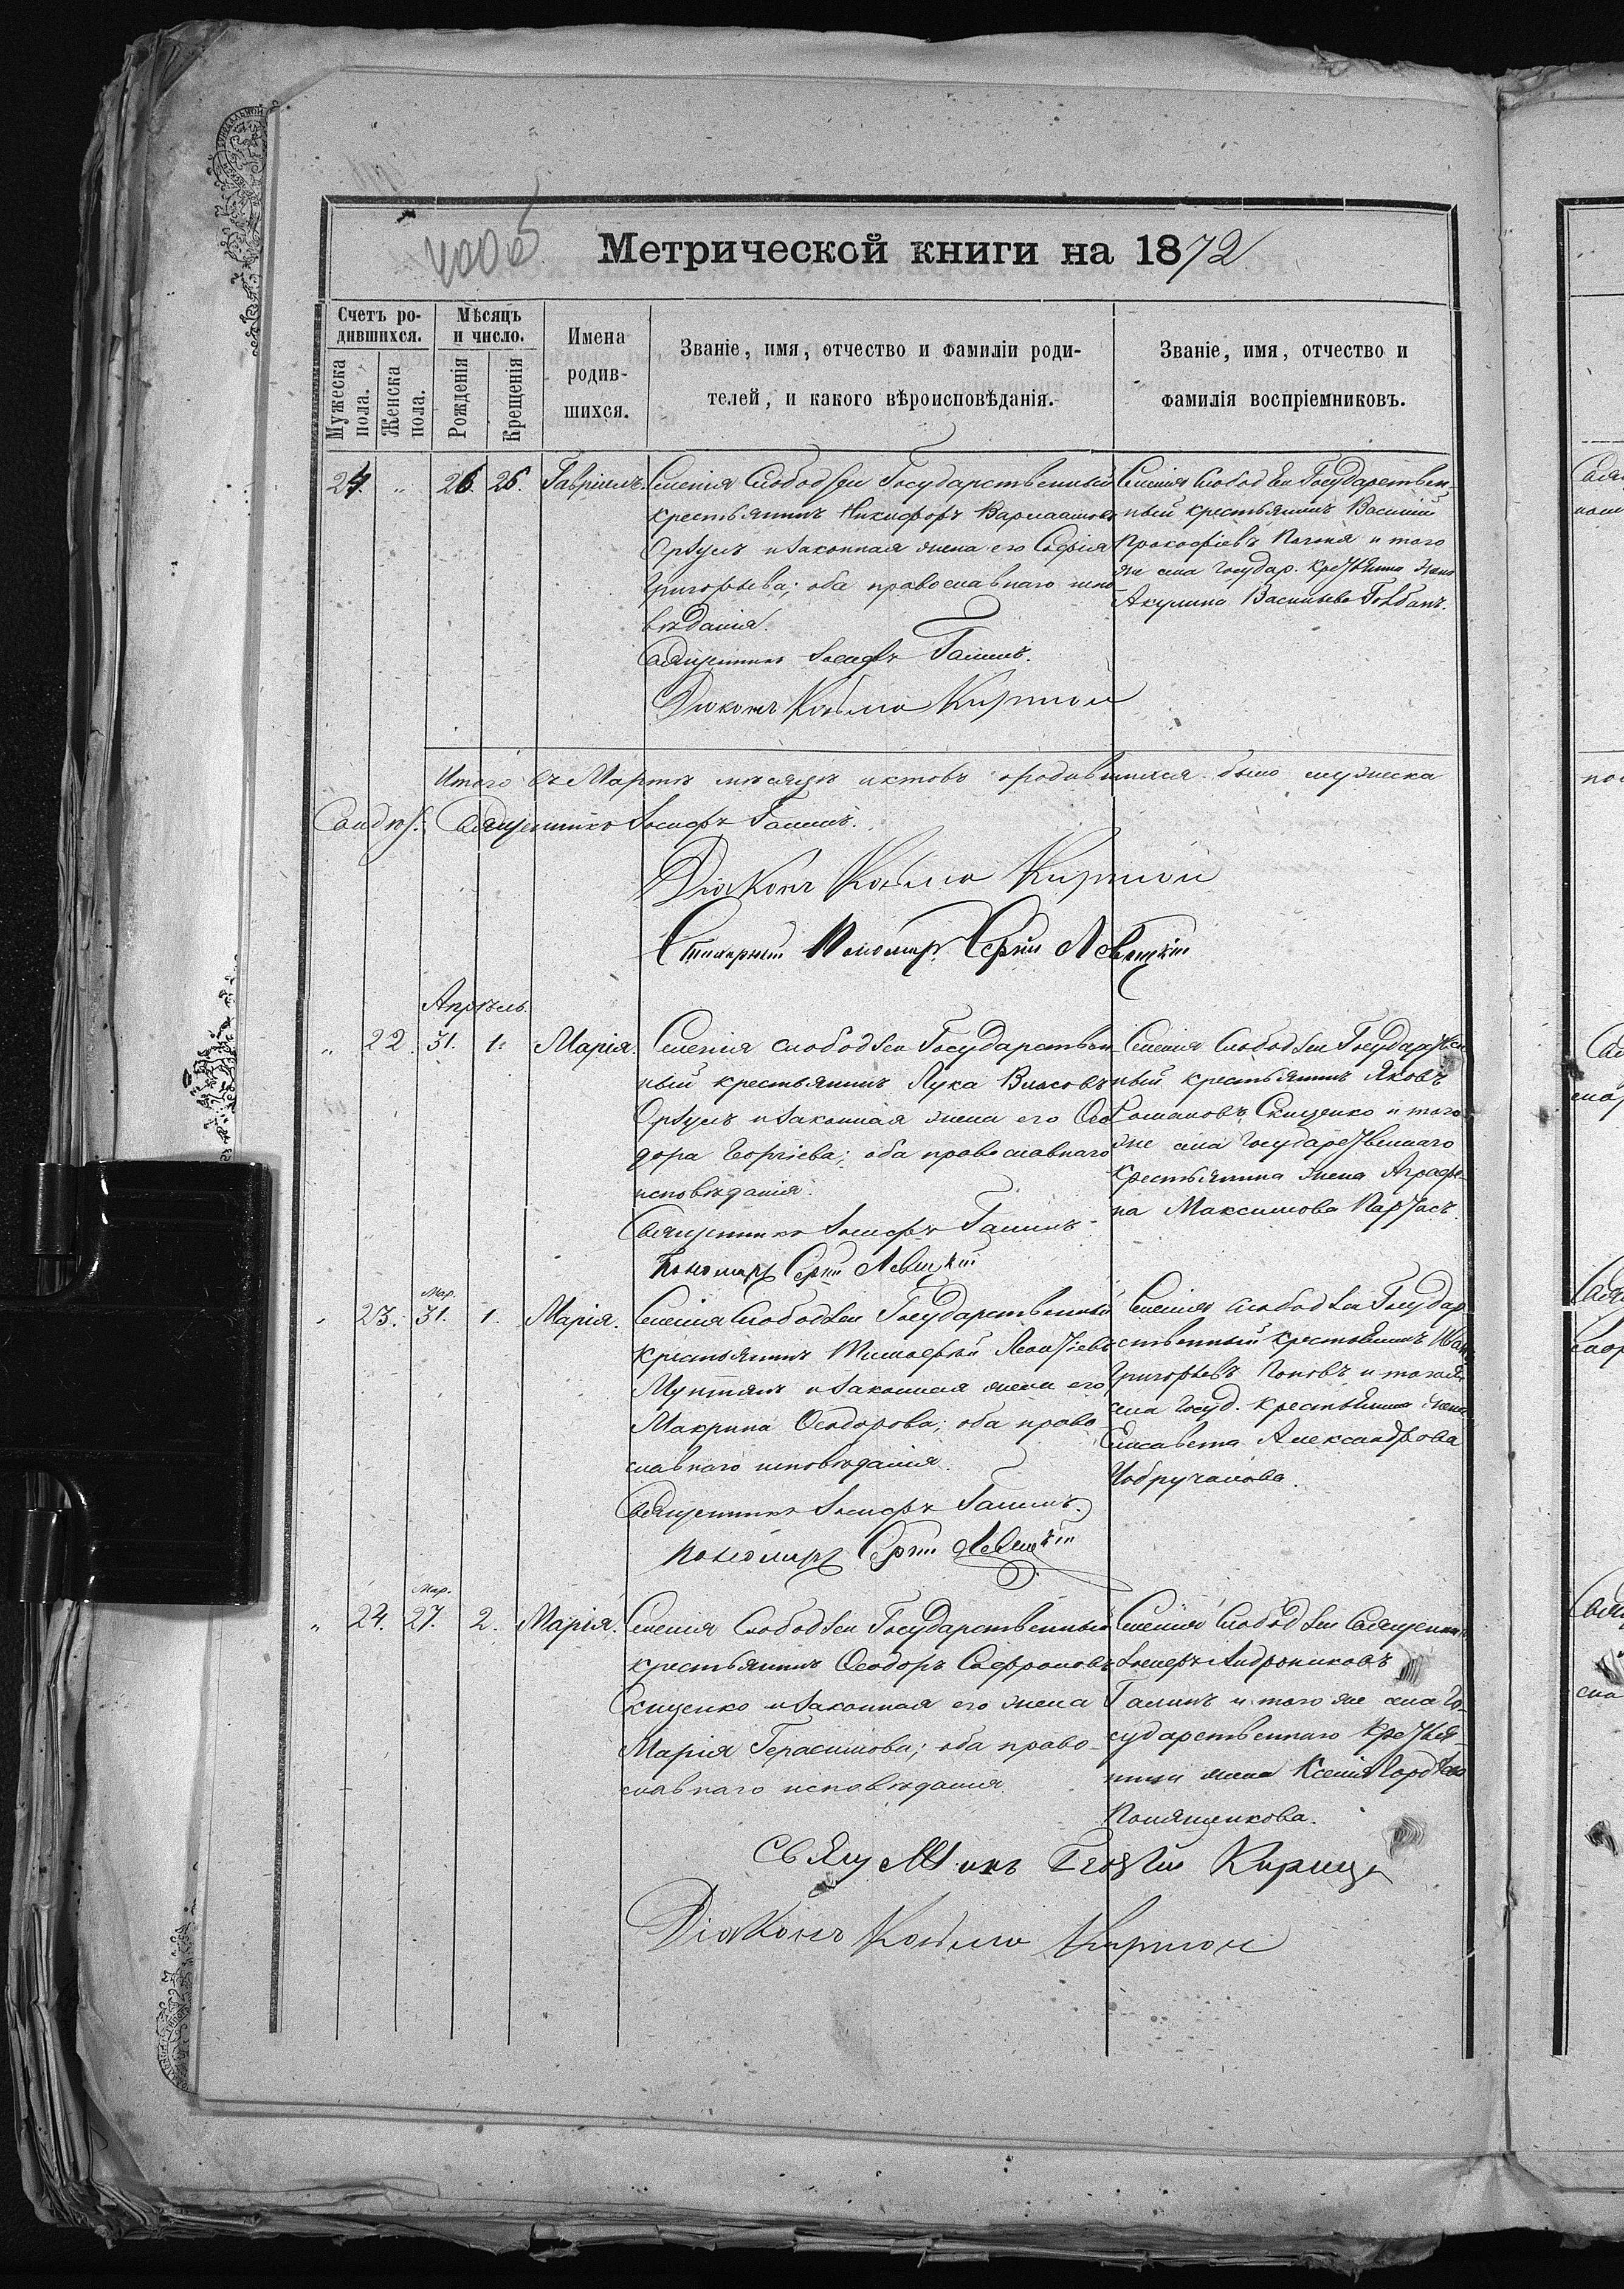 4006
Метрической книги на 1872
Счетъ ро-
дившихся.
Мѣсяцъ
и число.
Мужеска
пола.
Женска
пола.
Рожденія
Крещенія
Имена
родив-
шихся.
Званіе, имя, отчество и фамиліи роди-
телей, и какого вѣроисповѣданія.
Званіе, имя, отчество и
фамилія воспріемниковъ.
24. " 26. 26. Гавріилъ.
Селенія Слободзеи Государственный
крестьянинъ Никифоръ Варлаамовъ
и законная жена его Софія
Григорьева; оба православнаго испо
вѣданія.
Священникъ Іосифъ
Діаконъ Козьма
Селенія Слободзеи Государствен-
ный крестьянинъ Василій
Прокофіевъ и того
же села Государ. крестьянина жена
Акулина Васильева
Итого въ Мартѣ мѣсяцѣ актовъ о родившихся было мужеска
Священникъ Іосифъ
Діаконъ Козьма
Пономарь Сергій Левицкій
Апрѣль.
" 22. 31. 1. Марія.
Селенія Слободзеи Государствен-
ный крестьянинъ Лука Власовъ
и законная жена его Ѳео
дора Георгіева; оба православнаго
исповѣданія.
Священникъ Іосифъ
Пономарь Сергій Левицкій
Селенія Слободзеи Государствен
ный крестьянинъ Яковъ
Романовъ Скиценко и того
же села Государственнаго
крестьянина жена Аграфе-
на Максимова
Мар.
" 23. 31. 1. Марія.
Селенія Слободзеи Государственный
крестьянинъ Тимофей Леонтіевъ
Мунтянъ и законная жена его
Макрина Ѳеодорова; оба право-
славнаго исповѣданія.
Священникъ Іосифъ
Пономарь Сергій Левицкій
Селенія Слободзеи Государ
ственный крестьянинъ Иванъ
Григорьевъ Поповъ и тогоже
села Госуд. крестьянина жена
Елисавета Александрова
Чобручанова.
Мар.
" 24. 27. 2. Марія.
Селенія Слободзеи Государственный
крестьянинъ Ѳеодоръ Софроновъ
Скиценко и законная его жена
Марія Герасимова; оба право-
славнаго исповѣданія.
Селенія Слободзеи Священникъ
Іосифъ Андрониковъ
и того же села Го-
сударственнаго крестья-
нина жена Ксенія
Священникъ Георгій
Діаконъ Козьма